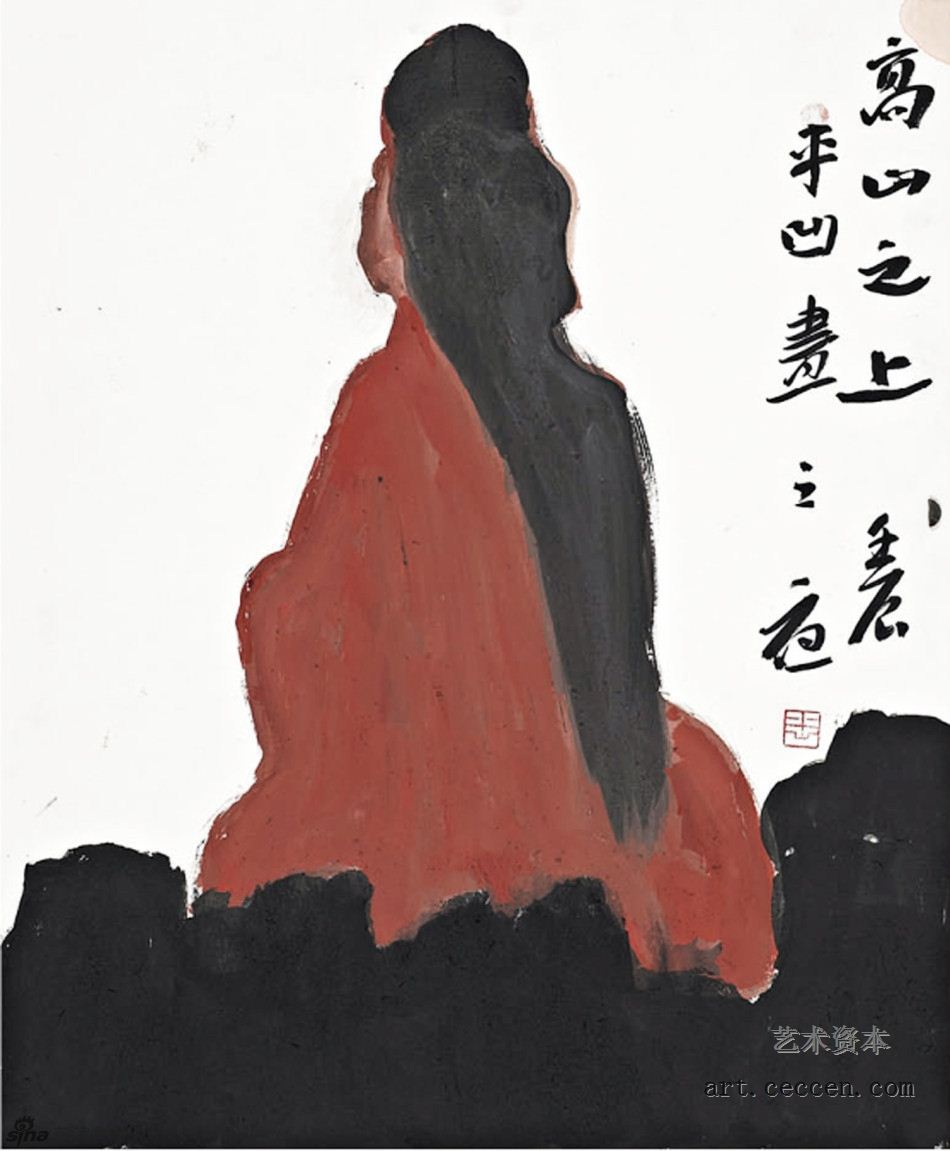 高山之上 壬辰
平凹畫之夜
艺术资本
art.ceccen.com
sina